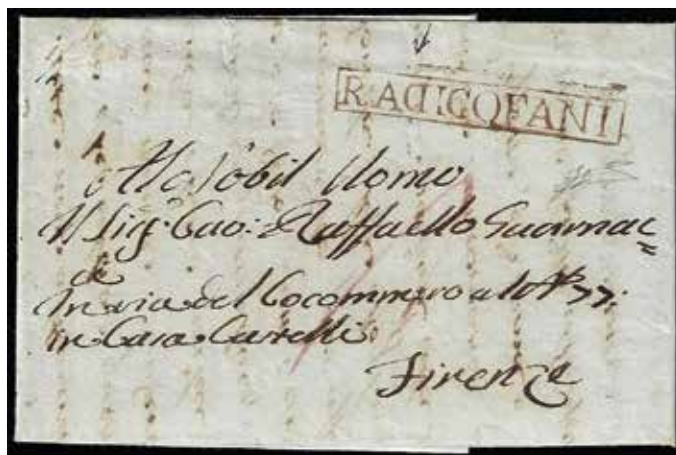 RADICOFANI
Al Nobil Uomo
Il Sigr: Cav: Raffaello Guarnac=
ci
In via del Cocommero alo No 77:
in Casa Carelli
Firenze